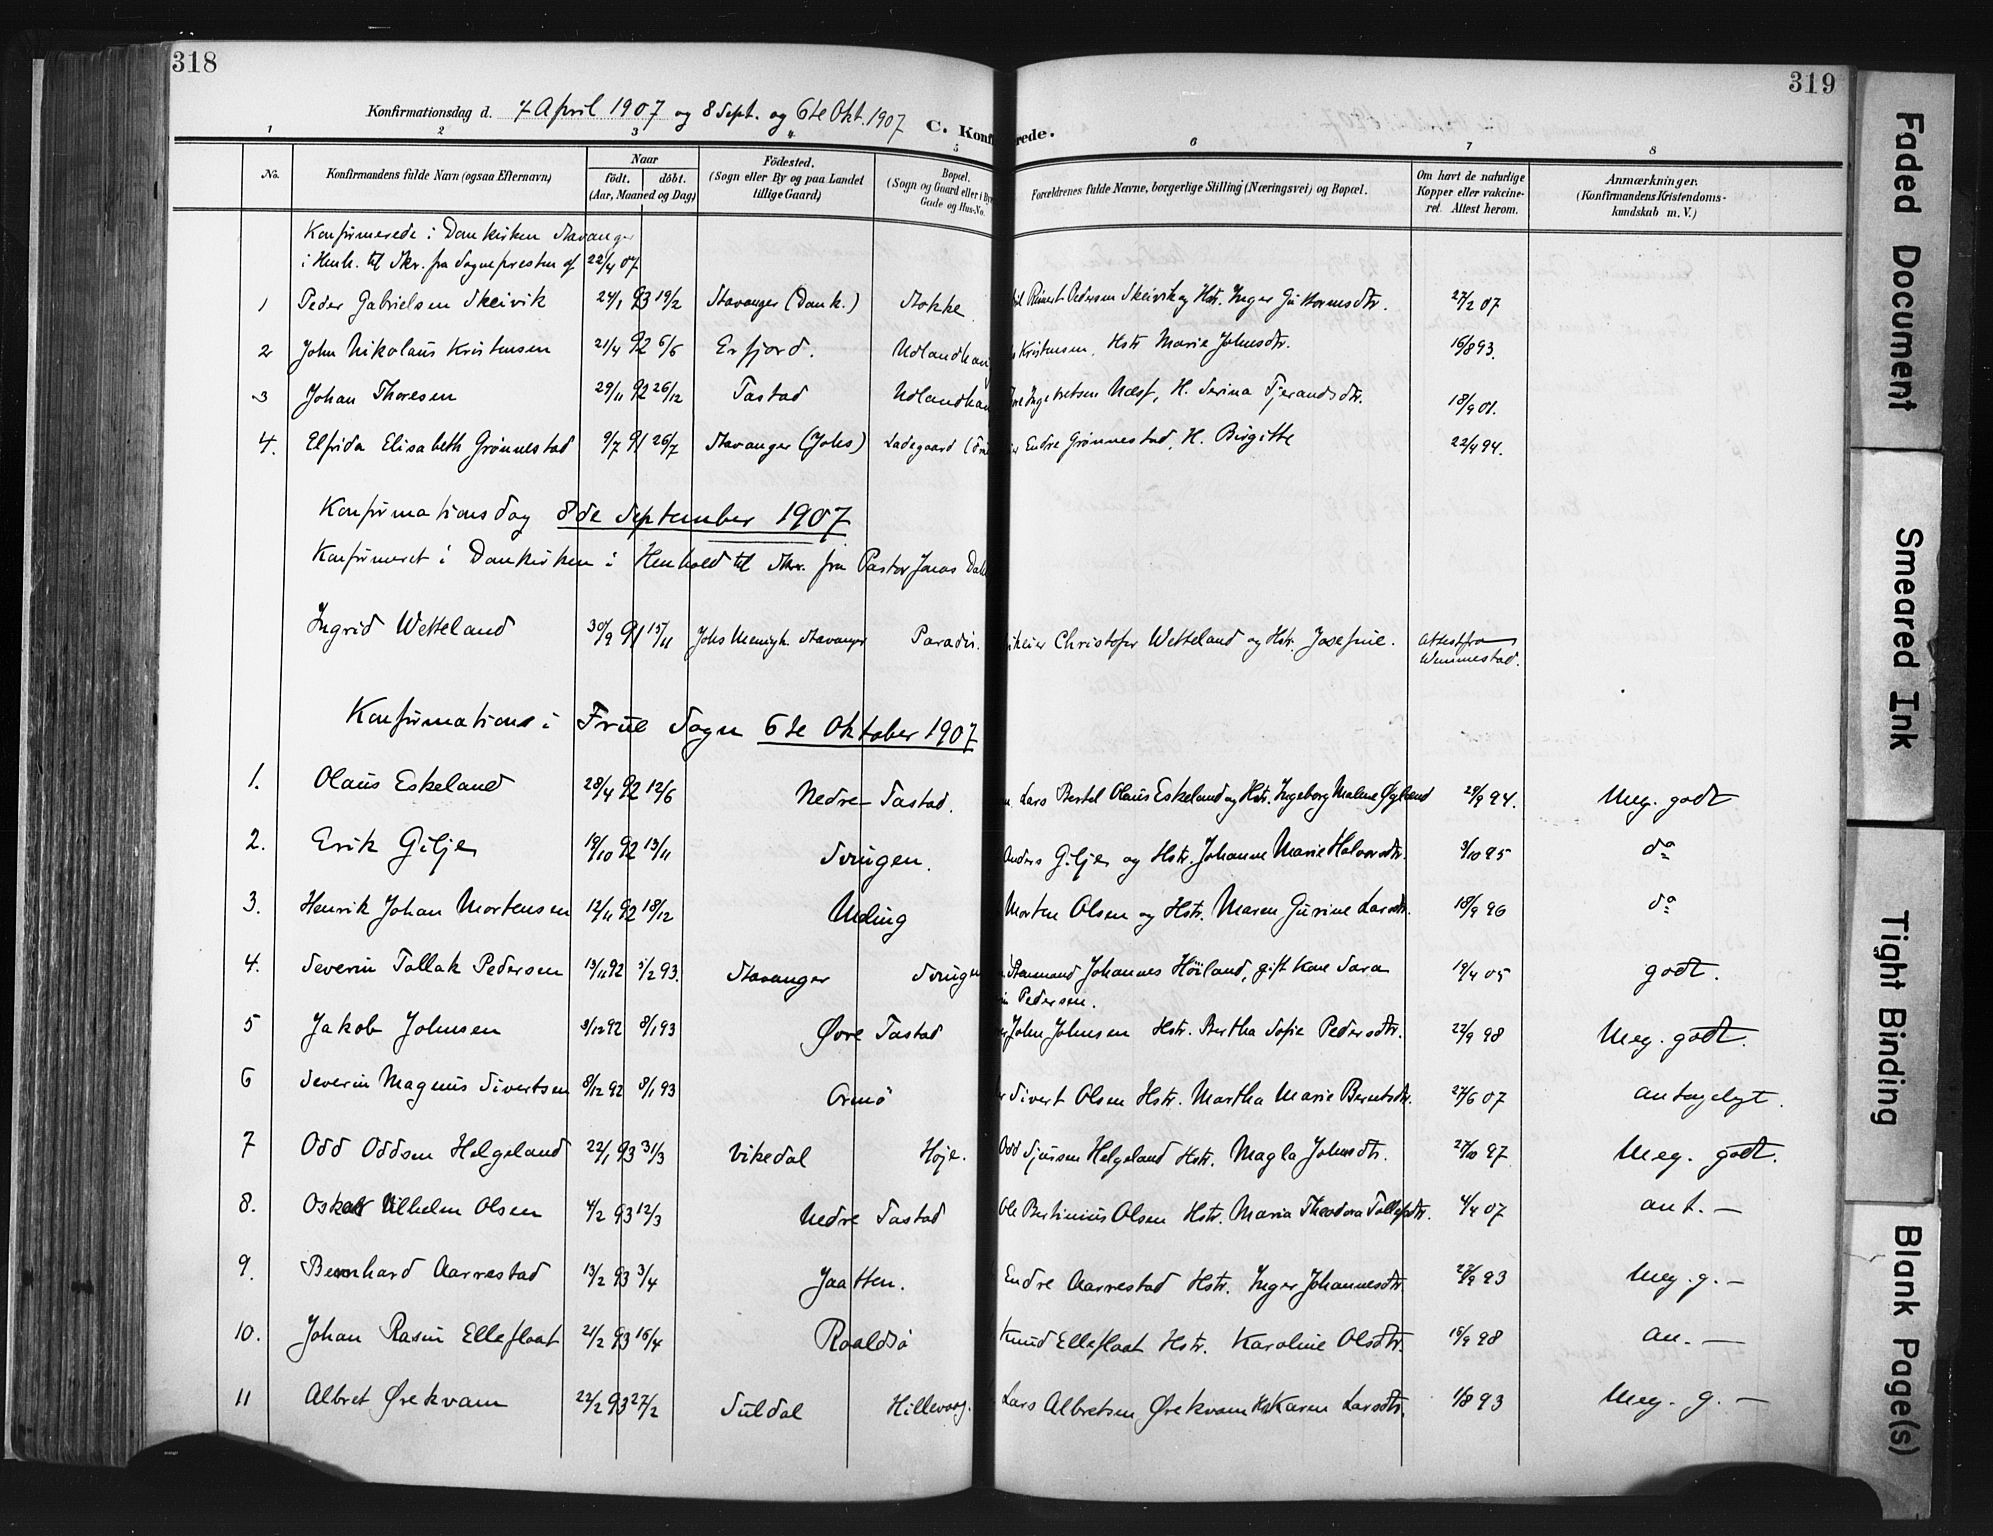 318
319
Konfirmationsdag d. 7 April 1907 og 8 Sept. og 6te Okt. 1907
C. Konfirmerede.
1 2 3 4 5 6 7 8
No. Konfirmandens fulde Navn (ogsaa Efternavn) Naar födt. döbt. (Aar, Maaned og Dag) Födested. (Sogn eller By og paa Landet tillige Gaard) Bopæl. (Sogn og Gaard eller i By Gade og Hus-No. Forældrenes fulde Navne, borgerlige Stilling (Næringsvei) og Bopæl. Om havt de naturlige Kopper eller vakcineret. Attest herom. Anmærkninger. (Konfirmandens Kristendomskundskab m. V.)
Konfirmerede i Domkirken Stavanger
i Henh. til Skr. fra Sognepresten af 22/4 07
1 Peder Gabrielsen Skeivik 24/1 93 19/2 Stavanger (Domk.) Stokke Reinert Pedersen Skeivik og Hstr. Inger Guttormsdtr. 27/2 07
2 John Nikolaus Kristensen 21/4 92 6/6 Erfjord. Udlandhau Kristensen, Hstr Marie Johnsdtr. 16/8 93.
3 Johan Thoresen 29/11 92 26/12 Tastad Udlandhau Ingebretsen Næsf, H. Serina Tjerandsdtr. 18/9 01.
4. Elfrida Elisabeth Grönnestad 9/7 91 26/7 Stavanger (Johs) Ladegaard Endre Grönnestad, H. Birgitte 22/4 94.
Konfirmationsdag 8de September 1907
Konfirmeret i Domkirken i Henhold til Skr. fra Pastor Jonas Dahl
Ingrid Wetteland 30/9 91 15/11 Johs Menigh. Stavanger Paradis. Christofer Wetteland og Hstr. Josefine. Attest fra Wennestad.
Konfirmations i Frue Sogn 6te Oktober 1907
1. Olaus Eskeland 28/4 92 12/6 Nedre Tastad. Lars Bertel Olaus Eskeland og Hstr. Ingeborg Malene Øglænd 29/9 94. Meg. godt
2. Erik Gilje 19/10 92 13/11 Svingen. Anders Gilje og Hstr. Johanne Marie Halvorsdtr. 3/10 95 do
3. Henrik Johan Mortensen 12/11 92 18/12 Meling Morten Olsen og Hstr. Maren Gurine Larsdtr. 18/9 96 do
4. Severin Tollak Pedersen 13/11 92 5/2 93. Stavanger Svingen Johannes Höiland, gift Kone Sara
Pedersen. 19/4 05 godt.
5 Jakob Johnsen 3/12 92 8/1 93 Øvre Tastad John Johnsen Hstr. Bertha Sofie Pedersdtr. 22/9 98 Meg. godt.
6 Severin Magnus Sivertsen 8/12 92 8/1 93 Ormö Sivert Olsen Hstr. Martha Marie Berntsdtr. 27/6 07 antageligt.
7 Odd Oddsen Helgeland 22/1 93 31/3 Vikedal Höje. Odd Sjursen Helgeland Hstr. Magla Johnsdtr. 27/10 97 Meg. godt.
8. Oskar Vilhelm Olsen 4/2 93 12/3 Nedre Tastad Ole Bertinius Olsen Hstr. Maria Theodora Tollefsdtr. 4/4 07 ant. —
9. Bernhard Aarrestad 13/2 93 3/4 Jaatten. Endre Aarrestad Hstr. Inger Johannesdtr. 27/9 93 Meg. g. —
10. Johan Rasin Elleflaat 21/2 93 16/4 Roaldsö Knud Elleflaat Hstr. Karoline Olsdtr. 15/9 98 an. —
11 Albret Ørekvam 22/2 93 27/2 Suldal Hillevaag. Lars Albretsen Ørekvam Hstr Karen Larsdtr. 1/8 93 Meg. g. —
Faded Document
Smeared Ink
Tight Binding
Blank Page(s)